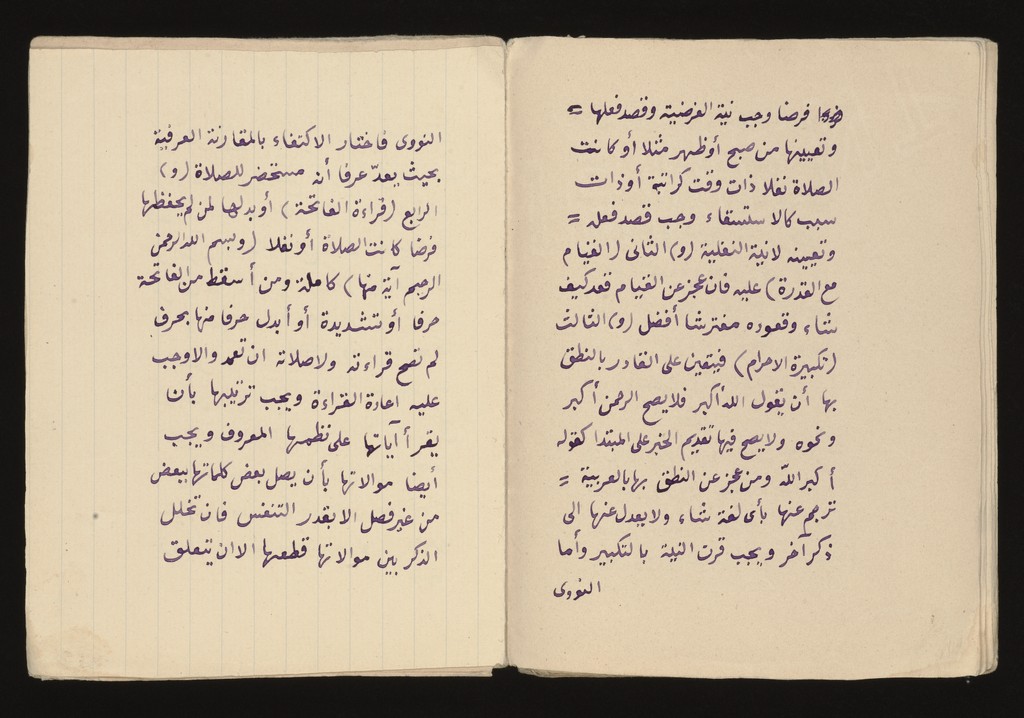 فرضا وجب نية الفرضية وقصد فعلها =
وتعيينها من صبح أو ظهر مثلا أو كانت
الصلاة نفلا ذات وقت كراتبة أو ذات
سبب كالاستسقاء وجب قصد فعله =
وتعيينه لا نية النفلية (و) الثانى (القيام
مع القدرة) عليه فان عجز عن القيام قعد كيف
شاء وقعوده مفترشا أفضل (و) الثالث
(تكبيرة الاحرام) فيتعين على القادر بالنطق
بها أن يقول الله أكبر فلا يصح الرحمن أكبر
ونحوه ولا يصح فيها تقديم الخبر على المبتدا كقوله
أكبر الله ومن عجز عن النطق بها بالعربية =
ترجم عنها بأى لغة شاء ولا يعدل عنها الى
ذكر آخر ويجب قرن النية بالتكبير وأما
النووى
النووى فاختار الاكتفاء بالمقارنة العرفية
بحيث يعدّ عرفا أنه مستحضر للصلاة (و)
الرابع (قراءة الفاتحة) أو بدلها لمن لم يحفظها
فرضا كانت الصلاة أو نفلا (وبسم الله الرحمن
الرحيم آية منها) كاملة ومن أسقط من الفاتحة
حرفا أو تشديدة أو أبدل حرفا منها بحرف
لم تصح قراءته ولا صلاته ان تعمد والا وجب
عليه اعادة القراءة ويجب ترتيبها بأن
يقرأ آياتها على نظمها المعروف ويجب
أيضا موالاتها بأن يصل بعض كلماتها ببعض
من غير فصل الا بقدر التنفس فان تخلل
الذكر بين موالاتها قطعها الا ان يتعلق